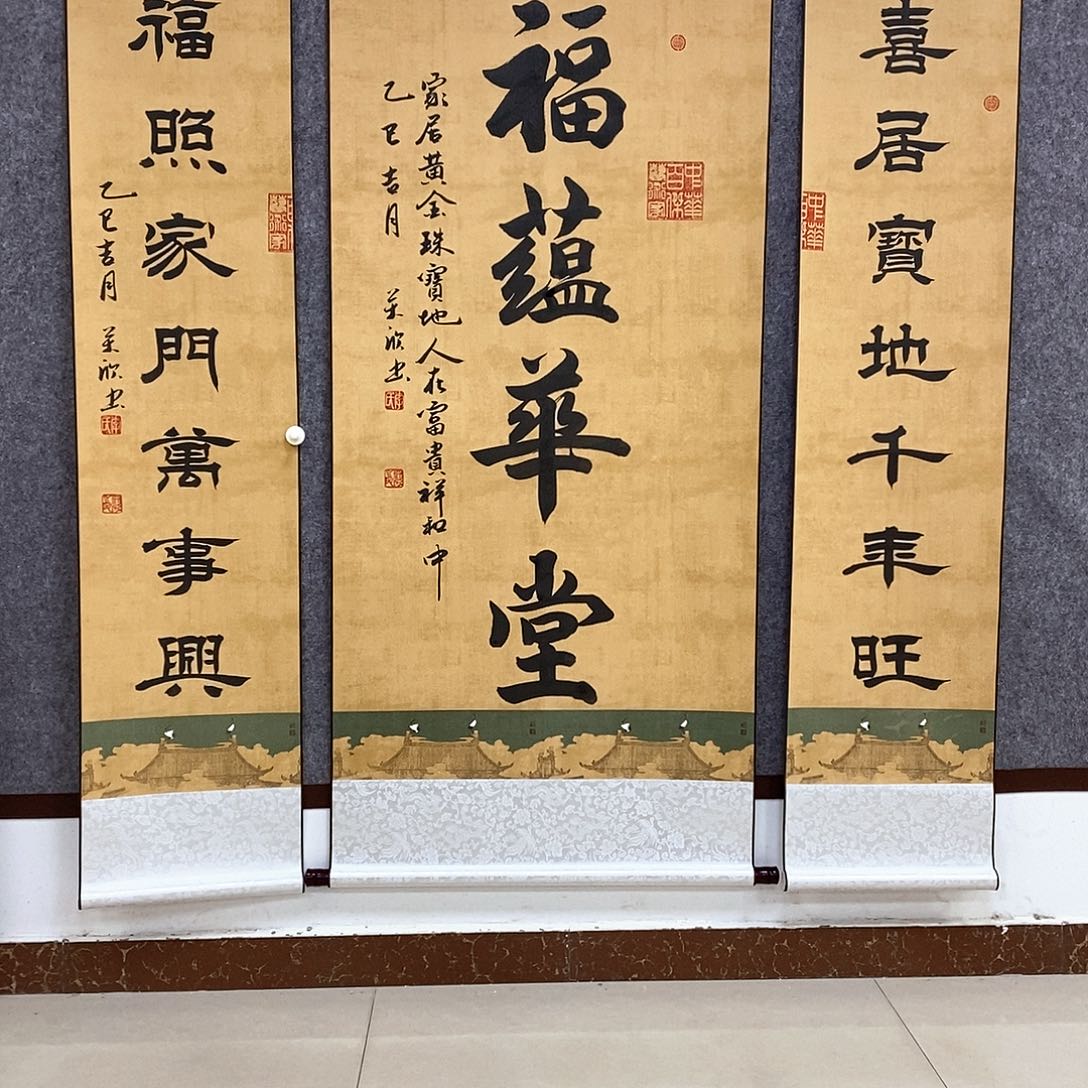 喜居寶地千年旺
福蘊華堂
家居黃金珠寶地人在富貴祥和中
乙巳吉月
福照家門萬事興
乙巳吉月
中華百傑